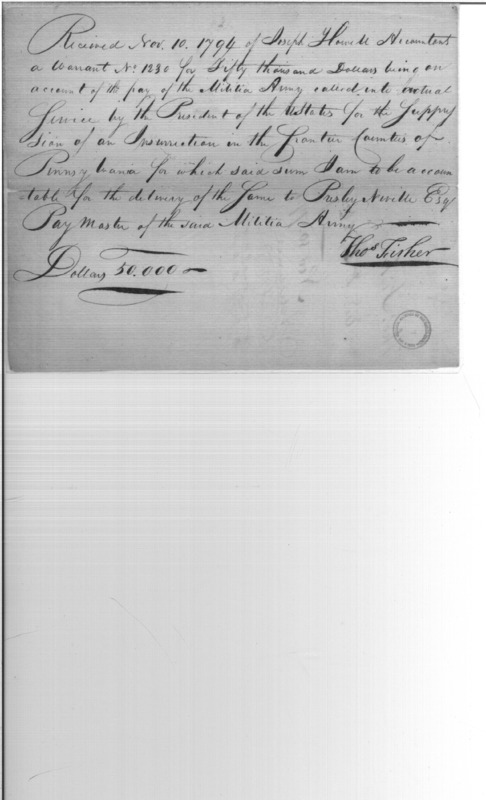 Received Nov. 10. 1794 of Joseph Howell Accountant
a Warrant No. 1230 for Fifty thousand Dollars being on
account of the pay of the Militia Army called into actual
Service by the President of the UStates for the Suppres
sion of an Insurrection in the frontier Counties of
Pennsylvania for which said sum I am to be accoun
table for the delivery of the same to Presley Neville Esqr
Pay Master of the said Militia Army
Thos Fisher
Dollars 50.000